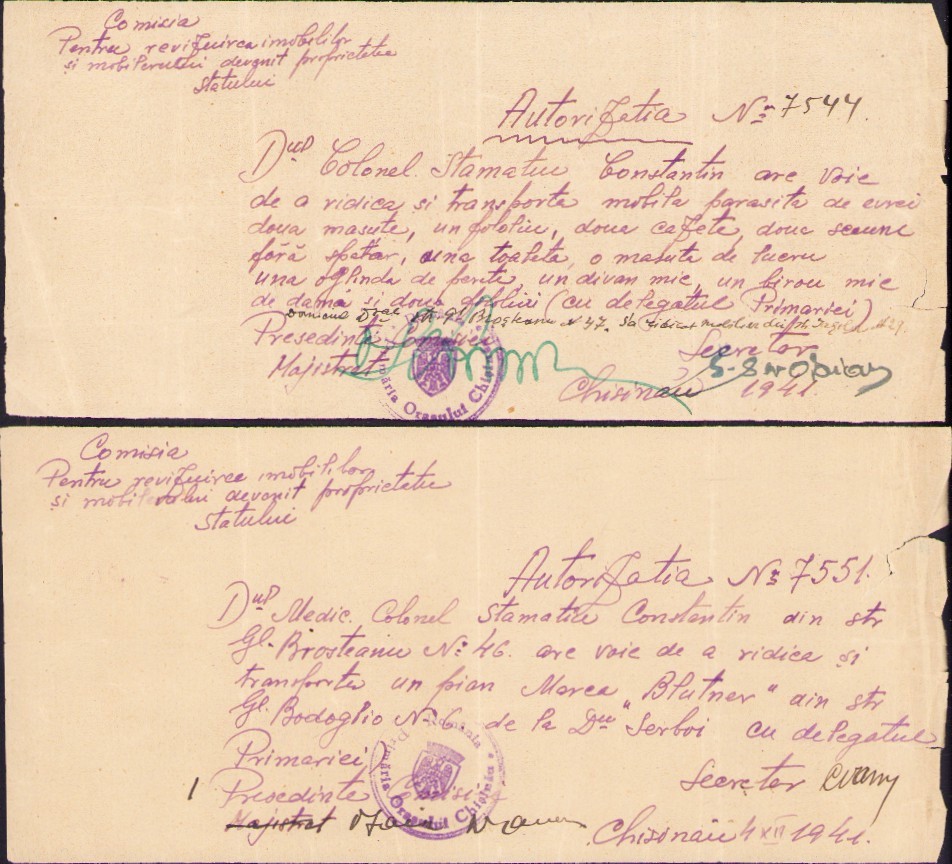 Comisia
Pentru revizuirea imobililor
și mobilerului devenit proprietatea
statului
Autorizatia No 7544.
Dul Colonel Stamatiu Constantin are voie
de a ridica și transporta mobila parasita de evrei
doua masute, un fotoliu, doua cazete, doua scaune
fără spatar, una toaleta, o masuta de lucru
una oglinda de perete, un divan mic, un birou mic
de dama și doua fotolii (cu delegatul Primariei)
str. Gl. Broșteanu N 47.
Presedinte Comisiei
Secretar
Majistrat
Primăria Orașului Chișinău
Chisinau 1941.
Comisia
Pentru revizuirea imobililor
și mobilerului devenit proprietatea
statului
Autorizatia No 7551.
Dul Medic. Colonel Stamatiu Constantin din str
Gl. Brosteanu No 46. are voie de a ridica și
transporta un pian Marca "Blutner" din str
Gl. Bodoglio No 6 de la Dnu Serboi cu delegatul
Primariei
Secreter
Presedinte
Majistrat
România Primăria Orașului Chișinău
Chisinau 4 XII 1941.